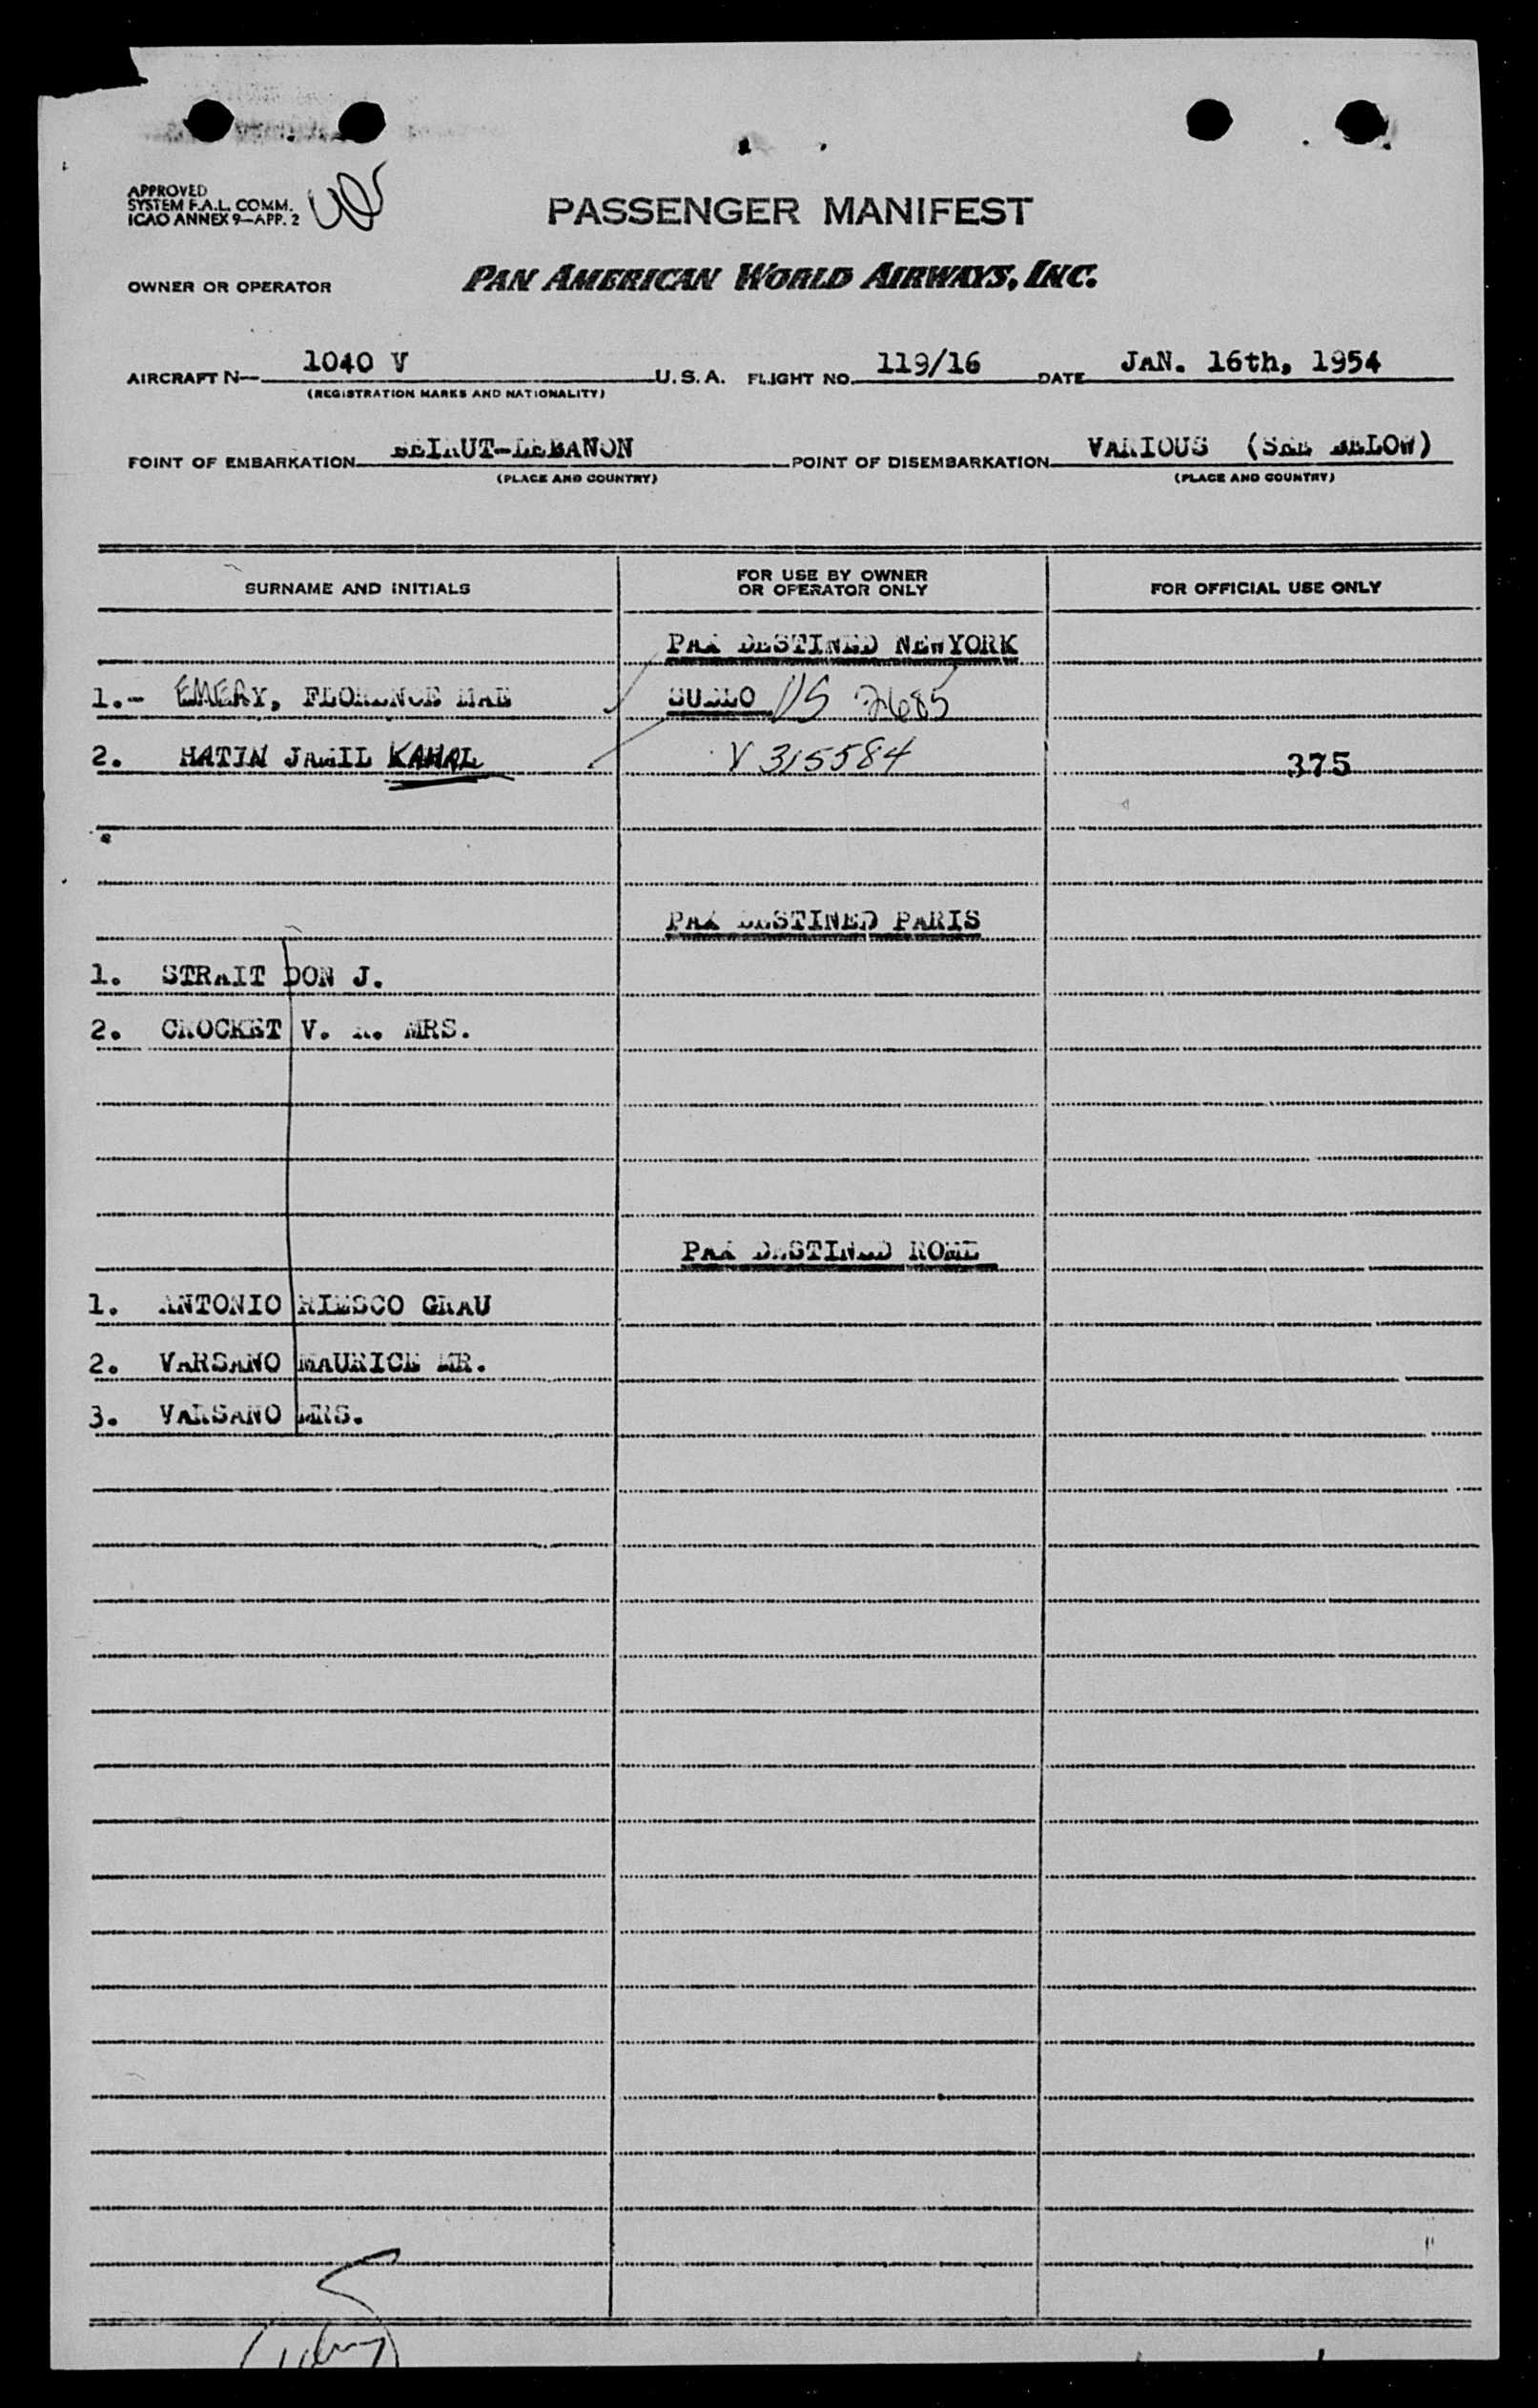 APPROVED
SYSTEM F.A.L. COMM.
ICAO ANNEX 9—APP. 2
PASSENGER MANIFEST
OWNER OR OPERATOR PAN AMERICAN WORLD AIRWAYS, INC.
AIRCRAFT N— 1040 V U.S.A. FLIGHT NO. 119/16 DATE JAN. 16th, 1954
(REGISTRATION MARKS AND NATIONALITY)
POINT OF EMBARKATION BEIRUT-LEBANON POINT OF DISEMBARKATION VARIOUS (SEE BELOW)
(PLACE AND COUNTRY) (PLACE AND COUNTRY)
SURNAME AND INITIALS FOR USE BY OWNER OR OPERATOR ONLY FOR OFFICIAL USE ONLY
PAX DESTINED NEWYORK
1.- EMERY, FLORENCE MAE US 2685
2. HATIN JAMIL KAHAL V 315584 375
PAX DESTINED PARIS
1. STRAIT DON J.
2. CROCKET V. MRS.
PAX DESTINED ROME
1. ANTONIO RIESCO GRAU
2. VARSANO MAURICE MR.
3. VARSANO MRS.